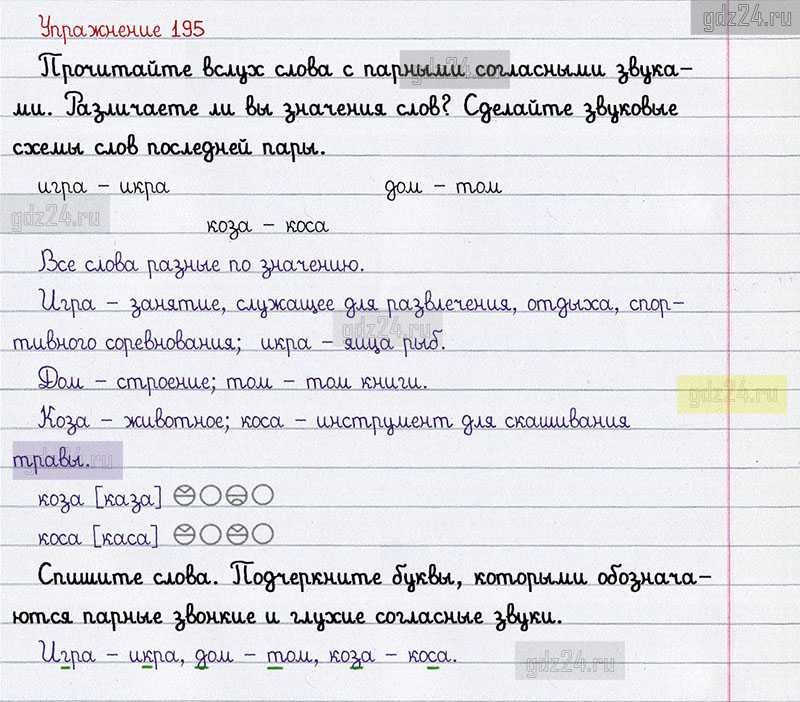 Упражнение 195
gdz24.ru
Прочитайте вслух слова с парными согласными звука-
gdz24.ru
ми. Различаете ли вы значения слов? Сделайте звуковые
схемы слов последней пары.
игра – икра дом – том
gdz24.ru
коза – коса
Все слова разные по значению.
Игра – занятие, служащее для развлечения, отдыха, спор-
gdz24.ru
тивного соревнования; икра – яйца рыб.
Дом – строение; том – том книги.
gdz24.ru
Коза – животное; коса – инструмент для скашивания
травы.
gdz24.ru
коза [каза]
коса [каса]
Спишите слова. Подчеркните буквы, которыми обознача-
ются парные звонкие и глухие согласные звуки.
Игра – икра, дом – том, коза – коса.
gdz24.ru